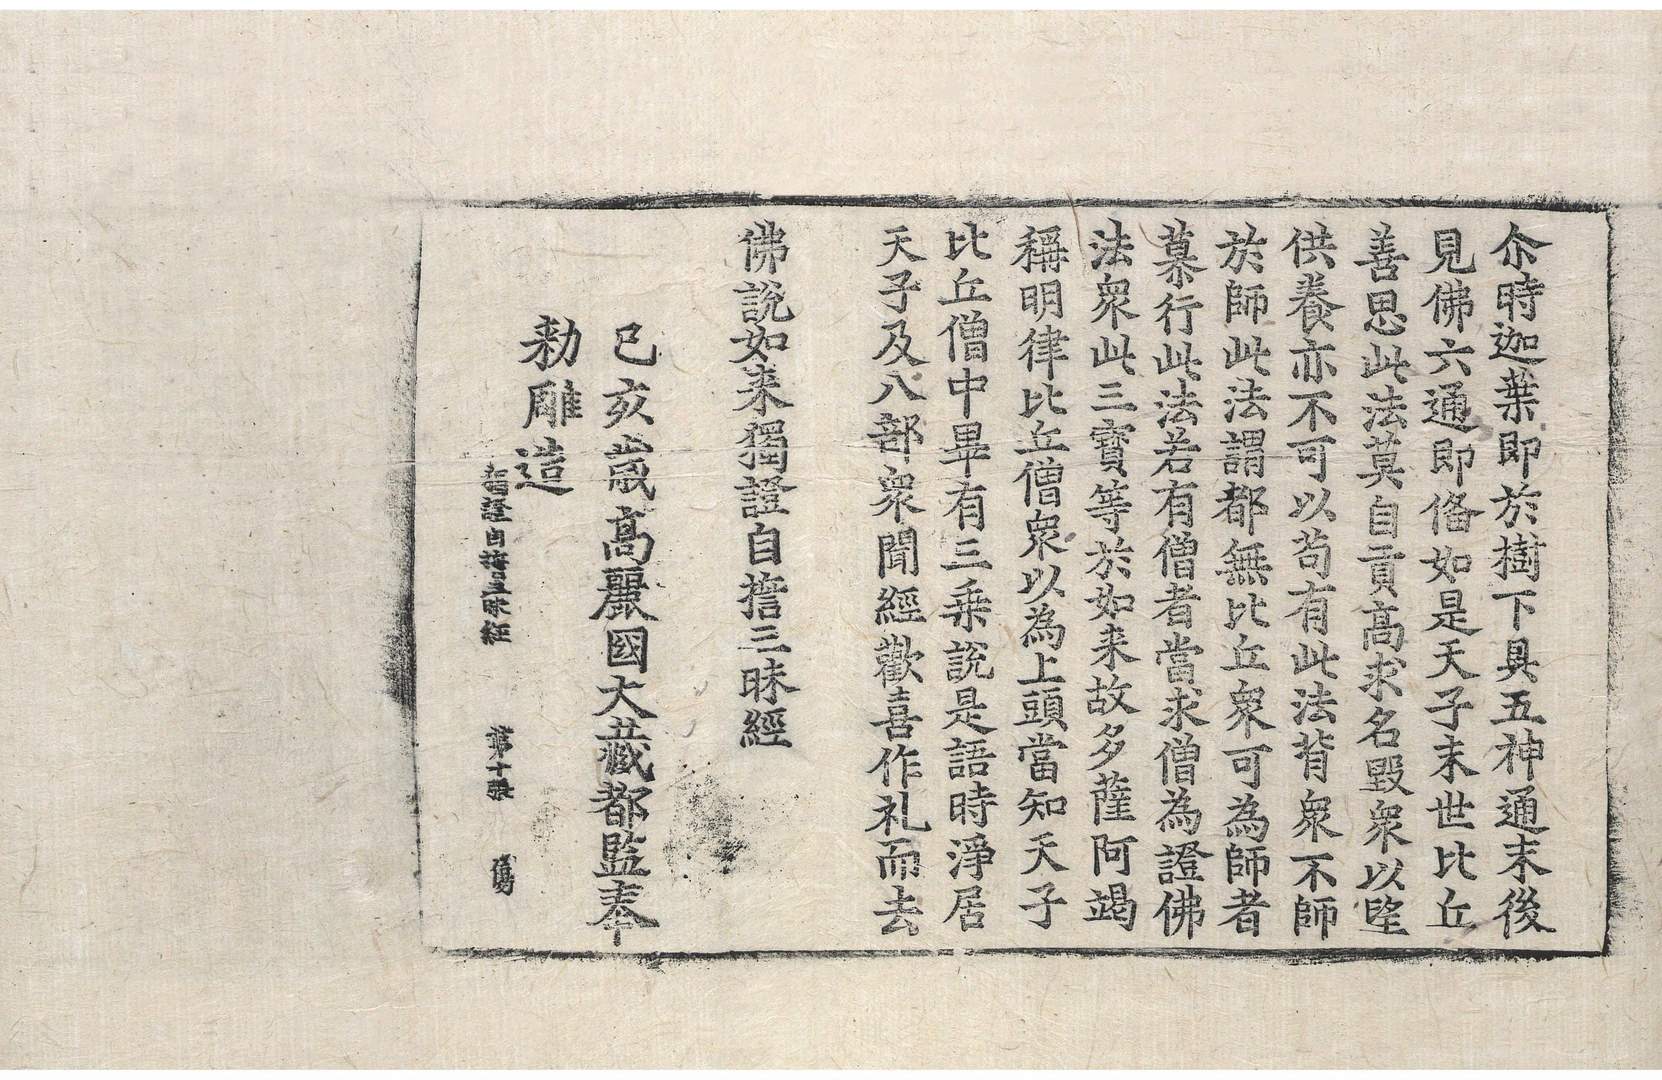 尒時迦葉即於樹下具五神通末後
見佛六通即俻如是天子末世比丘
善思此法莫自貢高求名毀衆以望
供養亦不可以苟有此法背衆不師
於師此法謂都無比丘衆可為師者
慕行此法若有僧者當求僧為證佛
法衆此三寶等於如来故多薩阿竭
稱明律比丘僧衆以為上頭當知天子
比丘僧中畢有三乗說是語時淨居
天子及八部衆聞經歡喜作礼而去
佛說如来獨證自擔三昧經
己亥歲高麗國大藏都監奉
勑雕造
證自擔三昧経 第十張 傷